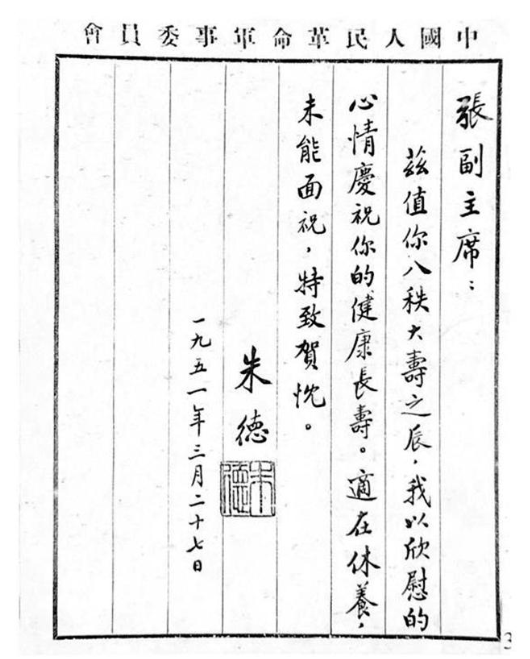 中國人民革命軍事委員會
張副主席：
茲值你八秩大壽之辰，我以欣慰的
心情慶祝你的健康長壽。適在休養，
未能面祝，特致賀忱。
朱德
朱德
一九五一年三月二十七日
3